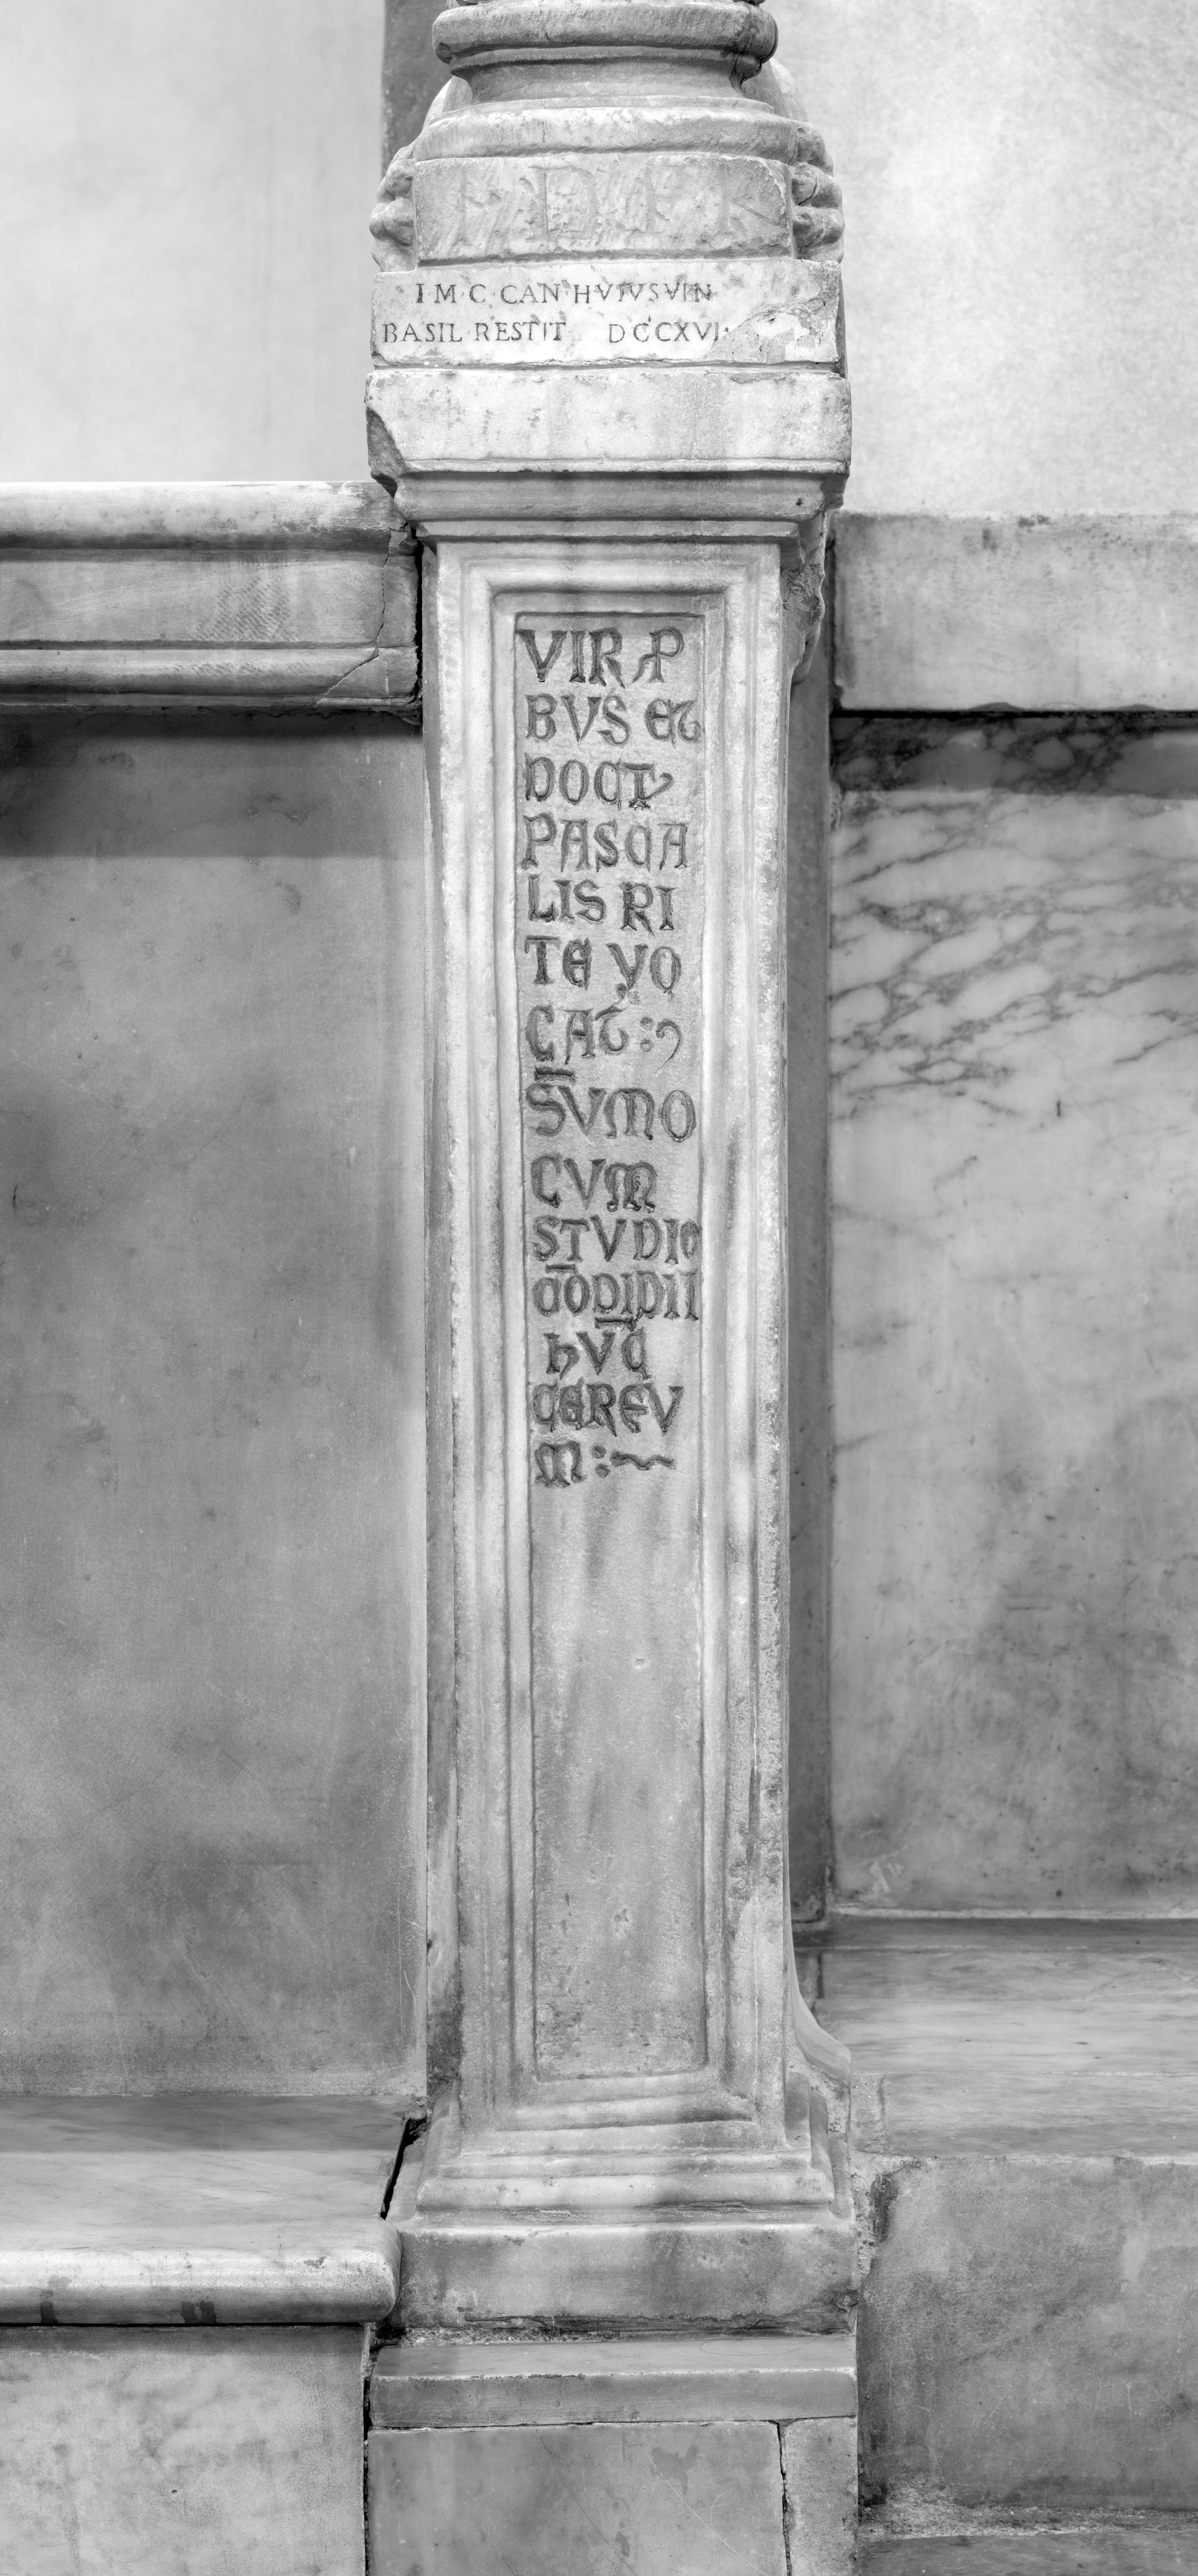 I M · C · CAN · HVIVS VIN
BASIL · RESTIT DCCXVI
VIR P
BVS ET
DOCT
PASCA
LIS RI
TE VO
CAT :
SVMO
CVM
STVDIO
CODIDII
hVC
CEREV
M :~